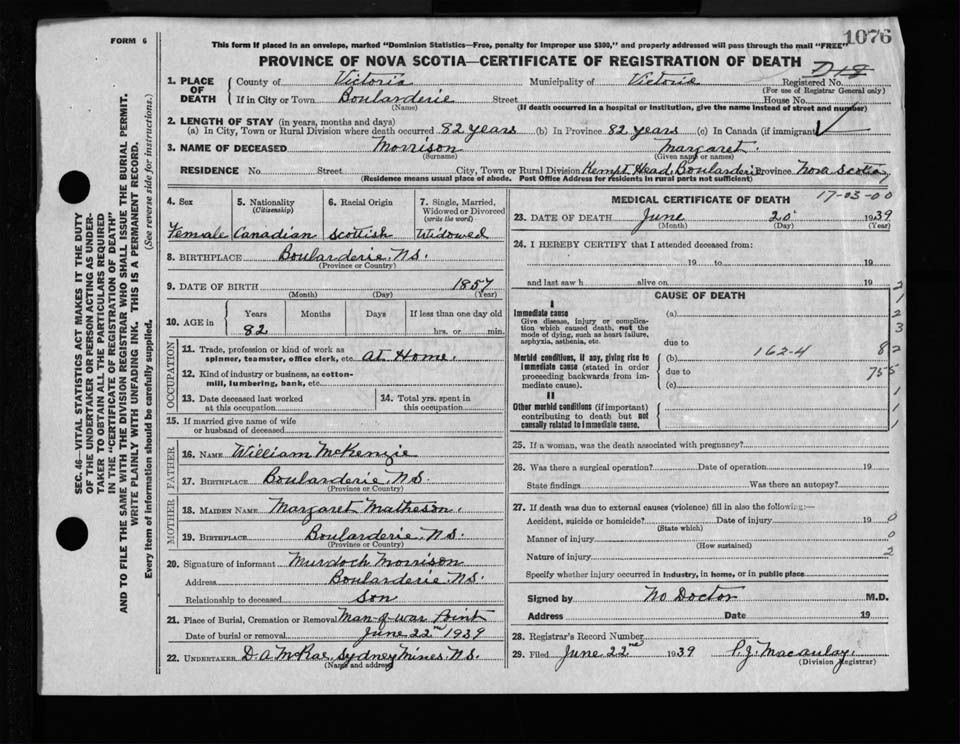 1076
FORM 6
This form if placed in an envelope, marked "Dominion Statistics—Free, penalty for improper use $300," and properly addressed will pass through the mail "FREE"
PROVINCE OF NOVA SCOTIA—CERTIFICATE OF REGISTRATION OF DEATH
SEC. 46—VITAL STATISTICS ACT MAKES IT THE DUTY
OF THE UNDERTAKER OR PERSON ACTING AS UNDER-
TAKER TO OBTAIN ALL THE PARTICULARS REQUIRED
IN THE "CERTIFICATE OF REGISTRATION OF DEATH"
AND TO FILE THE SAME WITH THE DIVISION REGISTRAR WHO SHALL ISSUE THE BURIAL PERMIT.
WRITE PLAINLY WITH UNFADING INK. THIS IS A PERMANENT RECORD.
Every item of information should be carefully supplied. (See reverse side for instructions.)
1. PLACE OF DEATH
County of Victoria Municipality of Victoria Registered No.
(For use of Registrar General only)
If in City or Town Boularderie Street House No.
(Name) (If death occurred in a hospital or institution, give the name instead of street and number)
2. LENGTH OF STAY (in years, months and days)
(a) In City, Town or Rural Division where death occurred 82 years (b) In Province 82 years (c) In Canada (if immigrant)
3. NAME OF DECEASED Morrison Margaret.
(Surname) (Given name or names)
RESIDENCE No. Street City, Town or Rural Division Kempt Head, Boularderie Province Nova Scotia
(Residence means usual place of abode. Post Office Address for residents in rural parts not sufficient)
4. Sex
Female
5. Nationality
(Citizenship)
Canadian
6. Racial Origin
Scottish
7. Single, Married,
Widowed or Divorced
(write the word)
Widowed
8. BIRTHPLACE Boularderie, N.S.
(Province or Country)
9. DATE OF BIRTH 1857
(Month) (Day) (Year)
10. AGE in Years Months Days If less than one day old
82 hrs. or min.
OCCUPATION
11. Trade, profession or kind of work as
spinner, teamster, office clerk, etc. At Home.
12. Kind of industry or business, as cotton-
mill, lumbering, bank, etc.
13. Date deceased last worked
at this occupation
14. Total yrs. spent in
this occupation
15. If married give name of wife
or husband of deceased
FATHER
16. NAME William McKenzie
17. BIRTHPLACE Boularderie, N.S.
(Province or Country)
MOTHER
18. MAIDEN NAME Margaret Matheson.
19. BIRTHPLACE Boularderie, N.S.
(Province or Country)
20. Signature of informant Murdoch Morrison
Address Boularderie N.S.
Relationship to deceased Son
21. Place of Burial, Cremation or Removal Man-of-war Point
Date of burial or removal June 22nd 1939
22. UNDERTAKER D. A. McRae, Sydney Mines, N.S.
(Name and address)
MEDICAL CERTIFICATE OF DEATH
17-03-00
23. DATE OF DEATH June 20 1939
(Month) (Day) (Year)
24. I HEREBY CERTIFY that I attended deceased from:
19 to 19
and last saw h alive on 19
CAUSE OF DEATH
I
Immediate cause
Give disease, injury or complica-
tion which caused death, not the
mode of dying, such as heart failure,
asphyxia, asthenia, etc.
(a)
due to
Morbid conditions, if any, giving rise to
immediate cause (stated in order
proceeding backwards from im-
mediate cause).
(b) 162-4
due to
(c)
II
Other morbid conditions (if important)
contributing to death but not
causally related to immediate cause.
2
1
2
3
82
755
1
1
1
25. If a woman, was the death associated with pregnancy?
26. Was there a surgical operation? Date of operation 19
State findings Was there an autopsy?
27. If death was due to external causes (violence) fill in also the following:—
Accident, suicide or homicide? Date of injury 19 0
(State which)
Manner of injury 0
(How sustained)
Nature of injury 2
Specify whether injury occurred in industry, in home, or in public place
Signed by No Doctor M.D.
Address Date 19
28. Registrar's Record Number
29. Filed June 22nd 1939 P. J. Macaulay.
(Division Registrar)